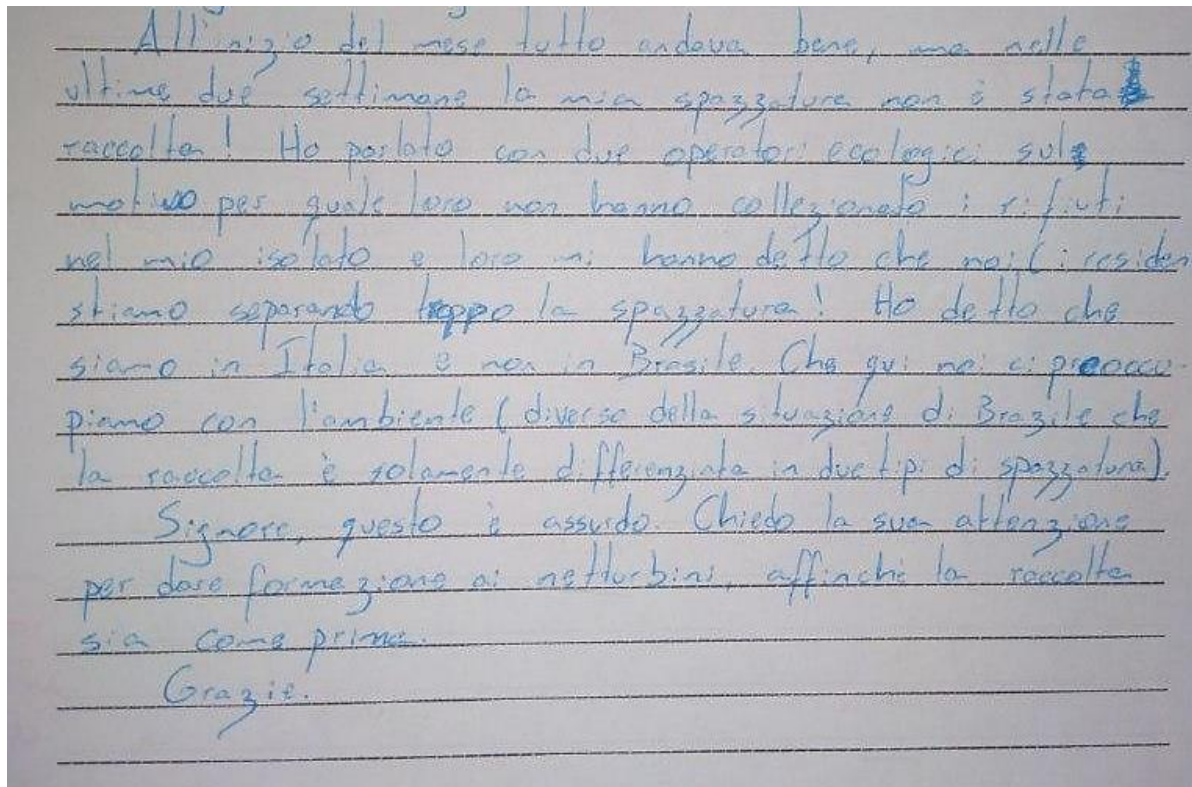 All'inizio del mese tutto andava bene, ma nelle
ultime due settimane la mia spazzatura non è stata
raccolta! Ho parlato con due operatori ecologici sul
motivo per quale loro non hanno collezionato i rifiuti
nel mio isolato e loro mi hanno detto che noi (i residen
stiamo separando troppo la spazzatura! Ho detto che
siamo in Italia e non in Brasile. Che qui noi ci preoccu-
piamo con l'ambiente (diverso della situazione di Brazile che
la raccolta è solamente differenziata in due tipi di spazzatura).
Signore, questo è assurdo. Chiedo la sua attenzione
per dare formazione ai netturbini, affinché la raccolta
sia come prima.
Grazie.